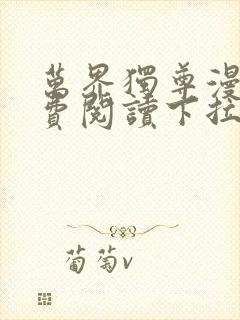 萬界獨尊漫
費閱讀下拉
葡萄v